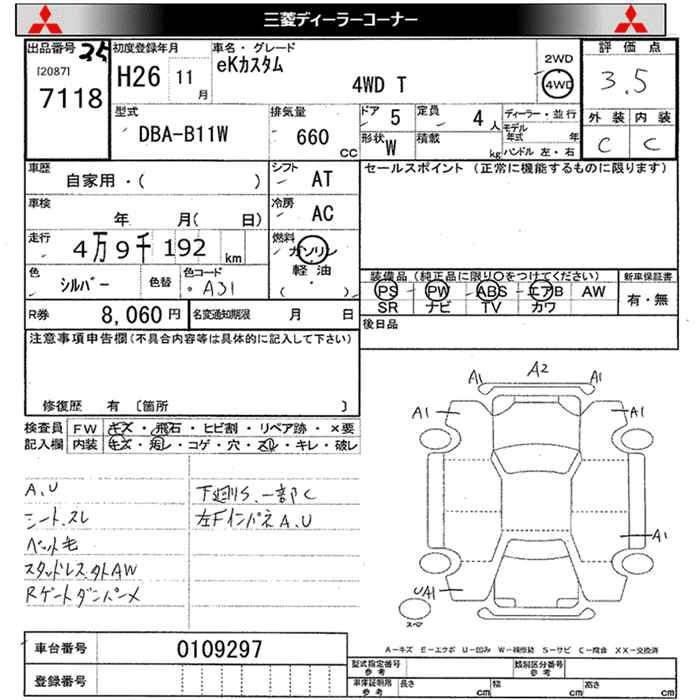 三菱ディーラーコーナー
出品番号 35
[2087]
7118
初度登録年月
H26 11月
車名・グレード
eKカスタム
4WD T
2WD
4WD
評価点
3.5
外装 内装
C C
型式
DBA-B11W
排気量
660 CC
ドア 5
定員 4人
形状 W
積載 kg
ディーラー・並行
モデル年式 年
ハンドル 左・右
車歴
自家用・( )
シフト AT
セールスポイント (正常に機能するものに限ります)
車検
年 月( 日)
冷房 AC
走行 4万9千192 km
燃料
ガソリン
軽油
( ・ )
色 シルバー
色替
色コード A31
装備品 (純正品に限り○をつけてください)
PS PW ABS エアB AW
SR ナビ TV カワ
新車保証書
有・無
R券 8,060円
名変通知期限 月 日
後日品
注意事項申告欄(不具合内容等は具体的に記入して下さい)
修復歴 有 〔箇所 〕
検査員 FW キズ・飛石・ヒビ割・リペア跡・×要
記入欄 内装 キズ・汚レ・コゲ・穴・スレ・キレ・破レ
A.U
シート.スレ
ペット毛
スタッドレス.外AW
Rゲートダンパー×
下廻りS.一部C
左FインパネA.U
A1 A2 A1
A1 A1
A1
UA1
スペア
車台番号 0109297
登録番号
A-キズ E-エクボ U-凹み W-補修跡 S-サビ C-腐食 XX-交換済
型式指定番号 参考
類別区分番号 参考
車庫証明用 参考 長さ cm 幅 cm 高さ cm